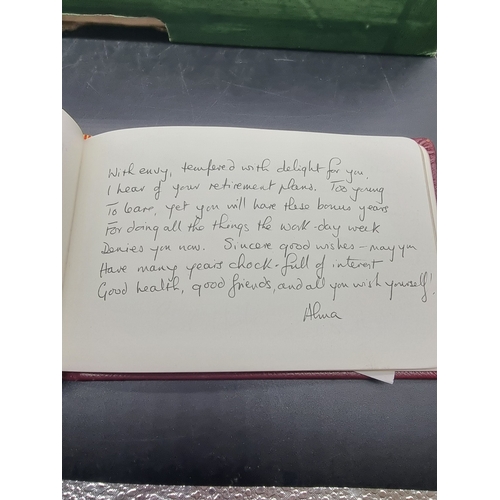 With envy, tempered with delight for you,
I hear of your retirement plans. Too young
To leave, yet you will have these bonus years
For doing all the things the work-day week
Denies you now. Sincere good wishes – may you
Have many years chock-full of interest
Good health, good friends, and all you wish yourself!
Alma